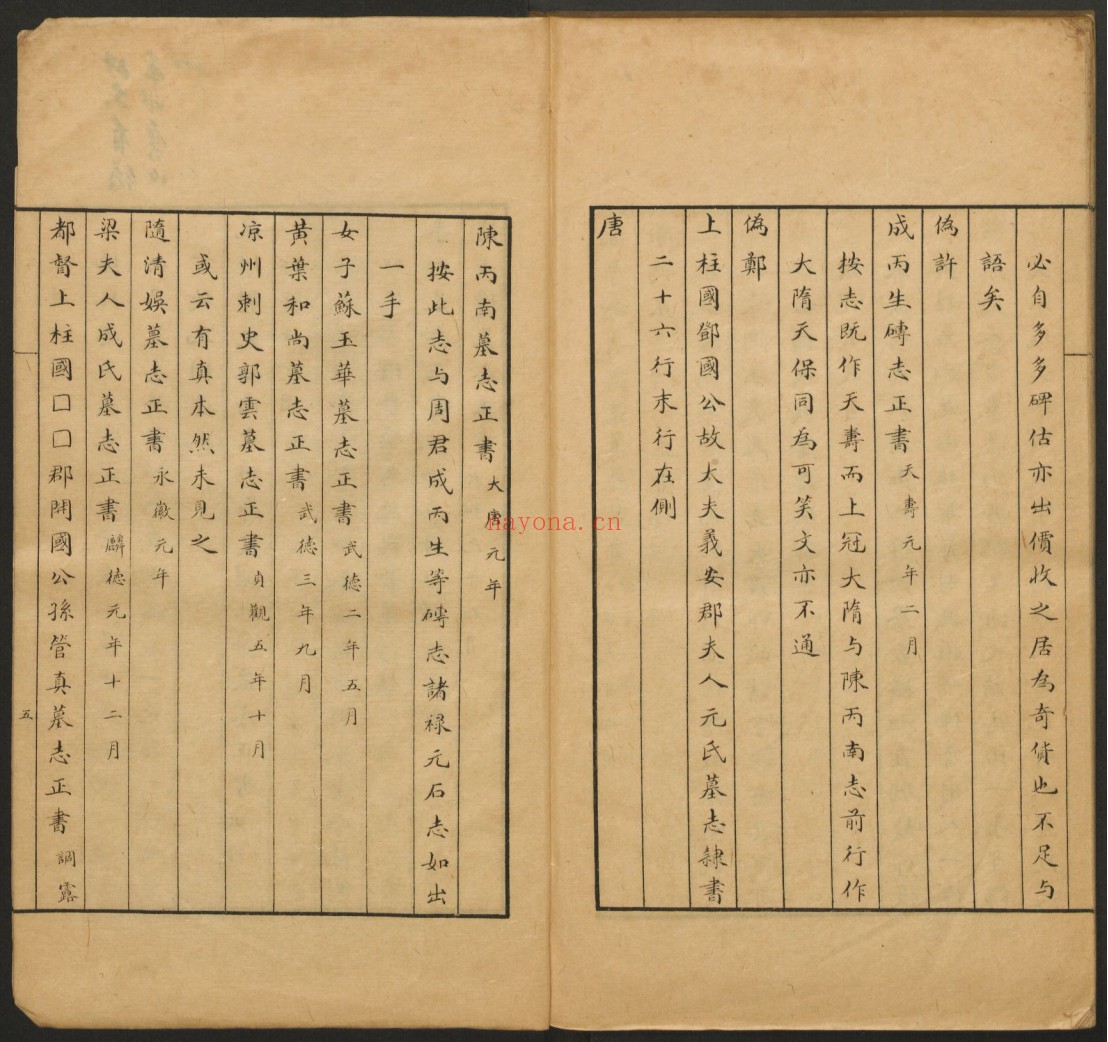 必自多多碑估亦出價收之居為奇貨也不足与
語矣
偽許
成丙生磚志正書天壽元年二月
按志既作天壽而上冠大隋与陳丙南志前行作
大隋天保同為可笑文亦不通
偽鄭
上柱國鄧國公故太夫義安郡夫人元氏墓志隸書
二十六行末行在側
唐
陳丙南墓志正書大唐元年
按此志与周君成丙生等磚志諸祿元石志如出
一手
女子蘇玉華墓志正書武德二年五月
黃葉和尚墓志正書武德三年九月
凉州刺史郭雲墓志正書貞觀五年十月
或云有真本然未見之
隨清娛墓志正書永徽元年
梁夫人成氏墓志正書麟德元年十二月
都督上柱國囗囗郡開國公孫管真墓志正書調露
五
nayona.cn